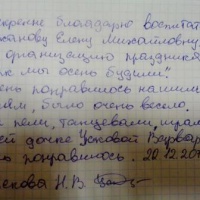 скренне благодарю воспитат
жанову Елену Михайловну
организацию праздника
к мы осень будили".
ень понравилось нашим
ям, было очень весело.
пели, танцевали, играл
ей дочке Усковой Варвар
ь понравилось. 20.12.20
скова Н.В.